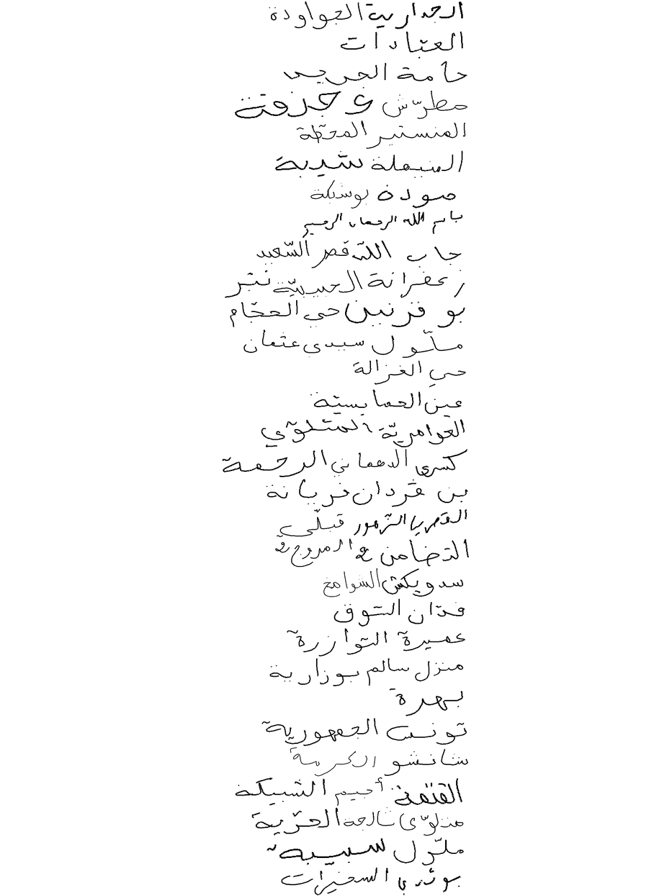 الجدارية الجواودة
العبادات
حامة الجريد
مطرّش وجذفة
المنستير المحطّة
المنيهلة شيبة
صودة بوشبكة
باسم الله الرحمان الرحيم
جاب اللّه قصر السّعيد
زعفرانة الحبيبيّة نتبر
بوقرنين حي الحجّام
ملّول سيدي عثمان
حي الغزالة
عين الحمايسيّة
العوامريّة المتلوّي
كسرى الدهماني الرحمة
بن ڨردان فريانة
القصر يا الزّهور قبلّي
التضامن 2 المروج 2
سدويكش السوامع
فدّان السّوق
عميرة التوازرة
منزل سالم بوزارية
بهرة
تونس الجمهورية
شانشو الكرمة
القتفة أميم الشبيكة
متلوّي شالمه الحرّية
ملّول سبيبة
بوثدي السخيرات